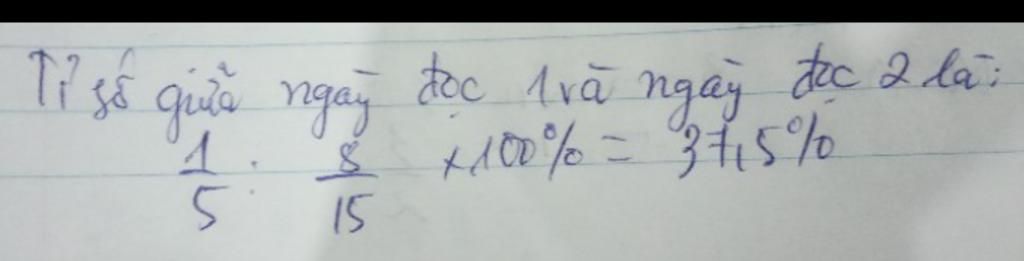 Tỉ số giữa ngày đọc 1 và ngày đọc 2 là:
1/5 : 8/15 × 100% = 37,5%